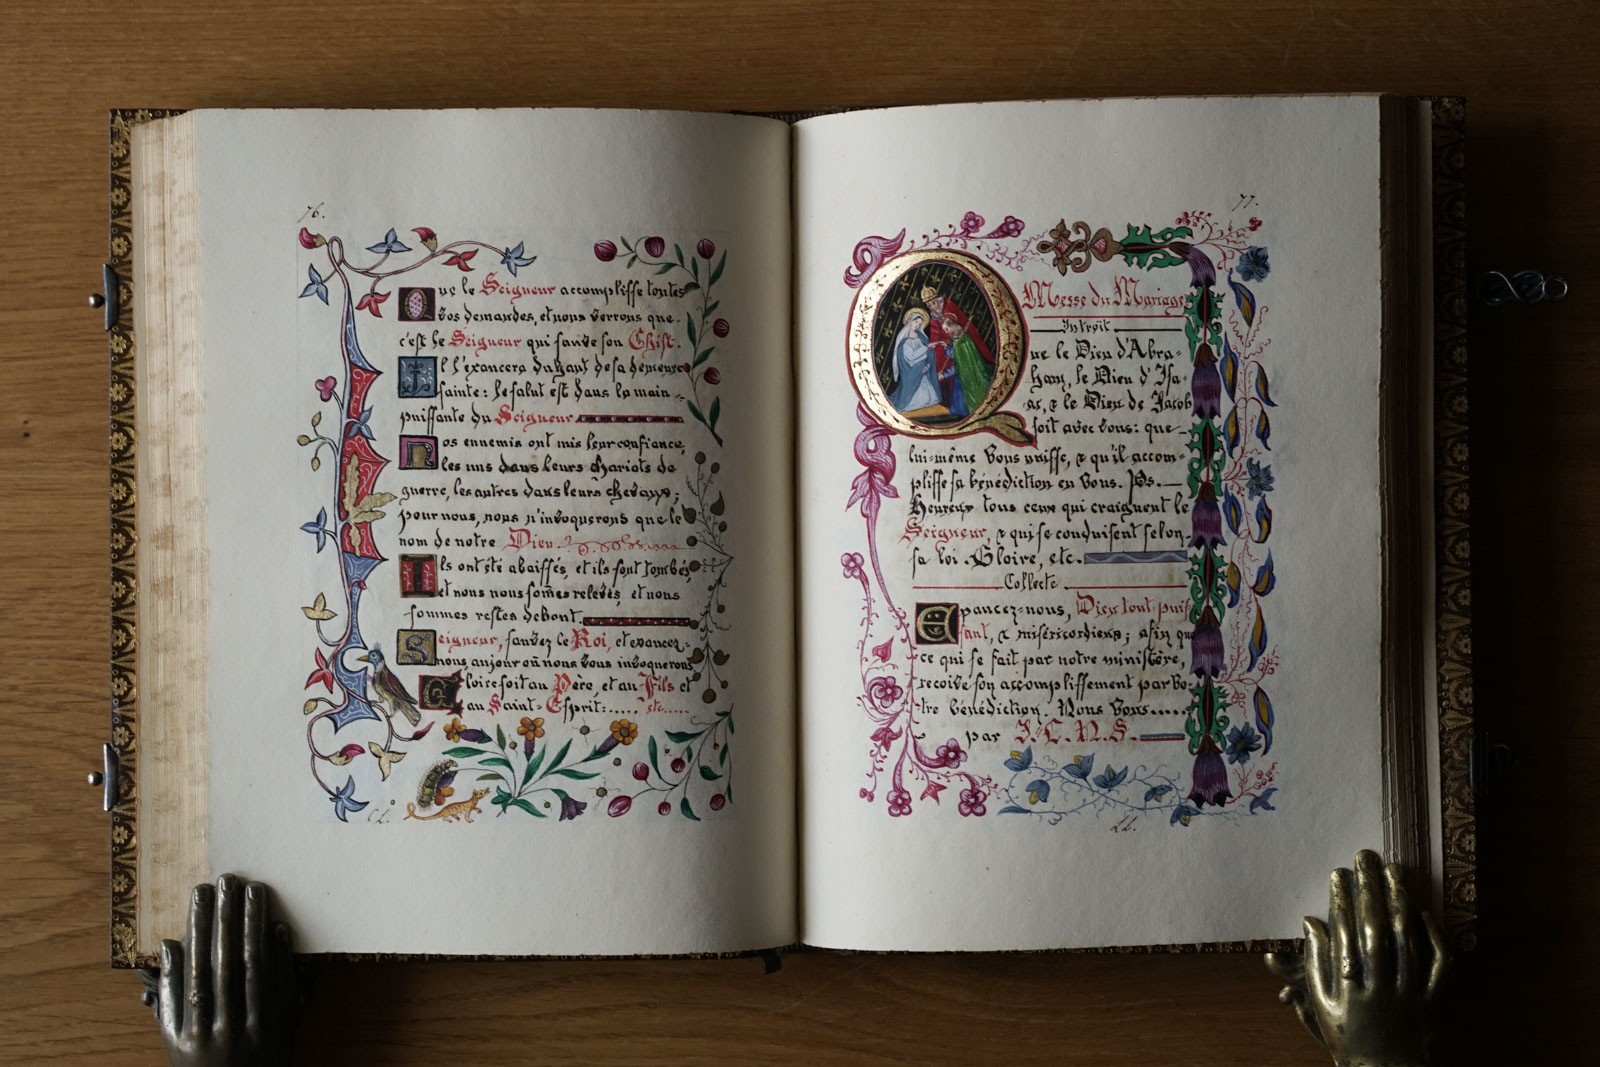 76.
Que le Seigneur accomplisse toutes
vos demandes, et nous verrons que
c'est le Seigneur qui sauve son Christ.
Il l'exaucera du haut de sa demeure
sainte: le salut est dans la main
puissante du Seigneur
Nos ennemis ont mis leur confiance,
les uns dans leurs chariots de
guerre, les autres dans leurs chevaux;
pour nous, nous n'invoquerons que le
nom de notre Dieu.
Ils ont été abaissés, et ils sont tombés,
et nous nous somes relevés, et nous
sommes restés debout.
Seigneur, sauvez le Roi, et exaucez-
nous, au jour où nous vous invoquerons
Gloire soit au Père, et au Fils et
au Saint-Esprit:..... etc.....
77.
Messe du Mariage
Introït
Que le Dieu d'Abra-
ham, le Dieu d'Isa-
ac, & le Dieu de Jacob
soit avec vous: que
lui-même vous unisse, & qu'il accom-
plisse sa bénédiction en vous. Ps.
Heureux tous ceux qui craignent le
Seigneur, & qui se conduisent selon
sa loi. Gloire, etc.
Collecte
Exaucez-nous, Dieu tout puis
sant, & miséricordieux; afin que
ce qui se fait par notre ministère,
reçoive son accomplissement par vo-
tre bénédiction. Nous vous.....
par J. C. N. S.